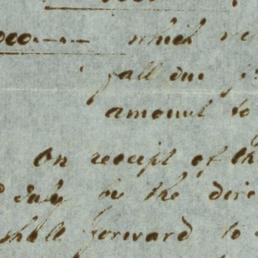 which re
fall due
amount to
On receipt of th
July in the dire
shall forward to